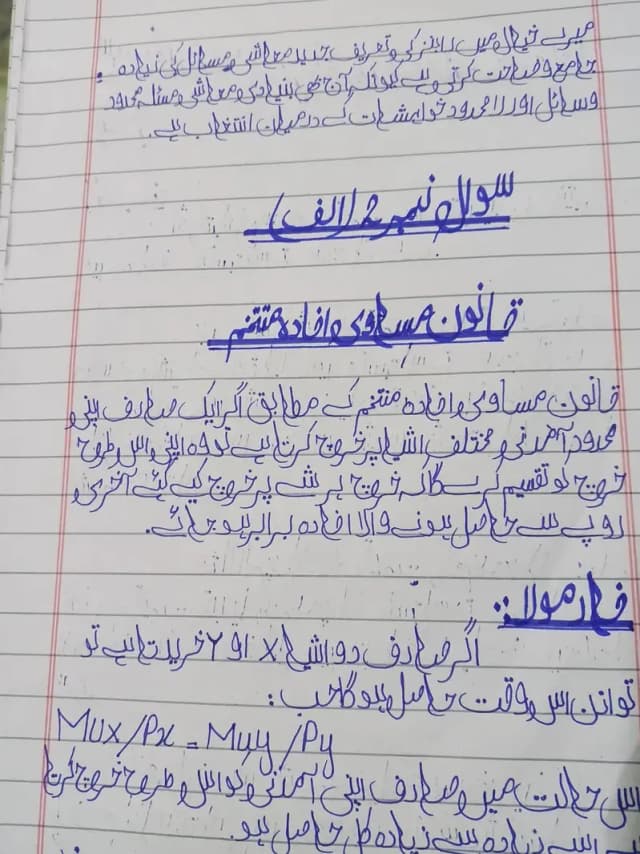 میرے خیال میں رابنز کی تعریف جدید معاشی مسائل کی زیادہ
جامع وضاحت کرتی ہے کیونکہ آج بھی بنیادی معاشی مسئلہ محدود
وسائل اور لامحدود خواہشات کے درمیان انتخاب ہے۔
سوال نمبر 2 (الف)
قانون مساوی افادہ مختتم
قانون مساوی افادہ مختتم کے مطابق اگر ایک صارف اپنی
محدود آمدنی مختلف اشیا پر خرچ کرتا ہے تو وہ اپنی اس طرح
خرچ کو تقسیم کرے گا کہ خرچ ہر شے پر خرچ کیے گئے آخری
روپے سے حاصل ہونے والا افادہ برابر ہو جائے۔
فارمولا:
اگر صارف دو اشیا X او Y خریدتا ہے تو
توازن اس وقت حاصل ہوگا جب:
Mux/Px = Muy/Py
اس حالت میں صارف اپنی آمدنی کو اس طرح خرچ کرتا
ہے اسے زیادہ سے زیادہ کل حاصل ہو۔